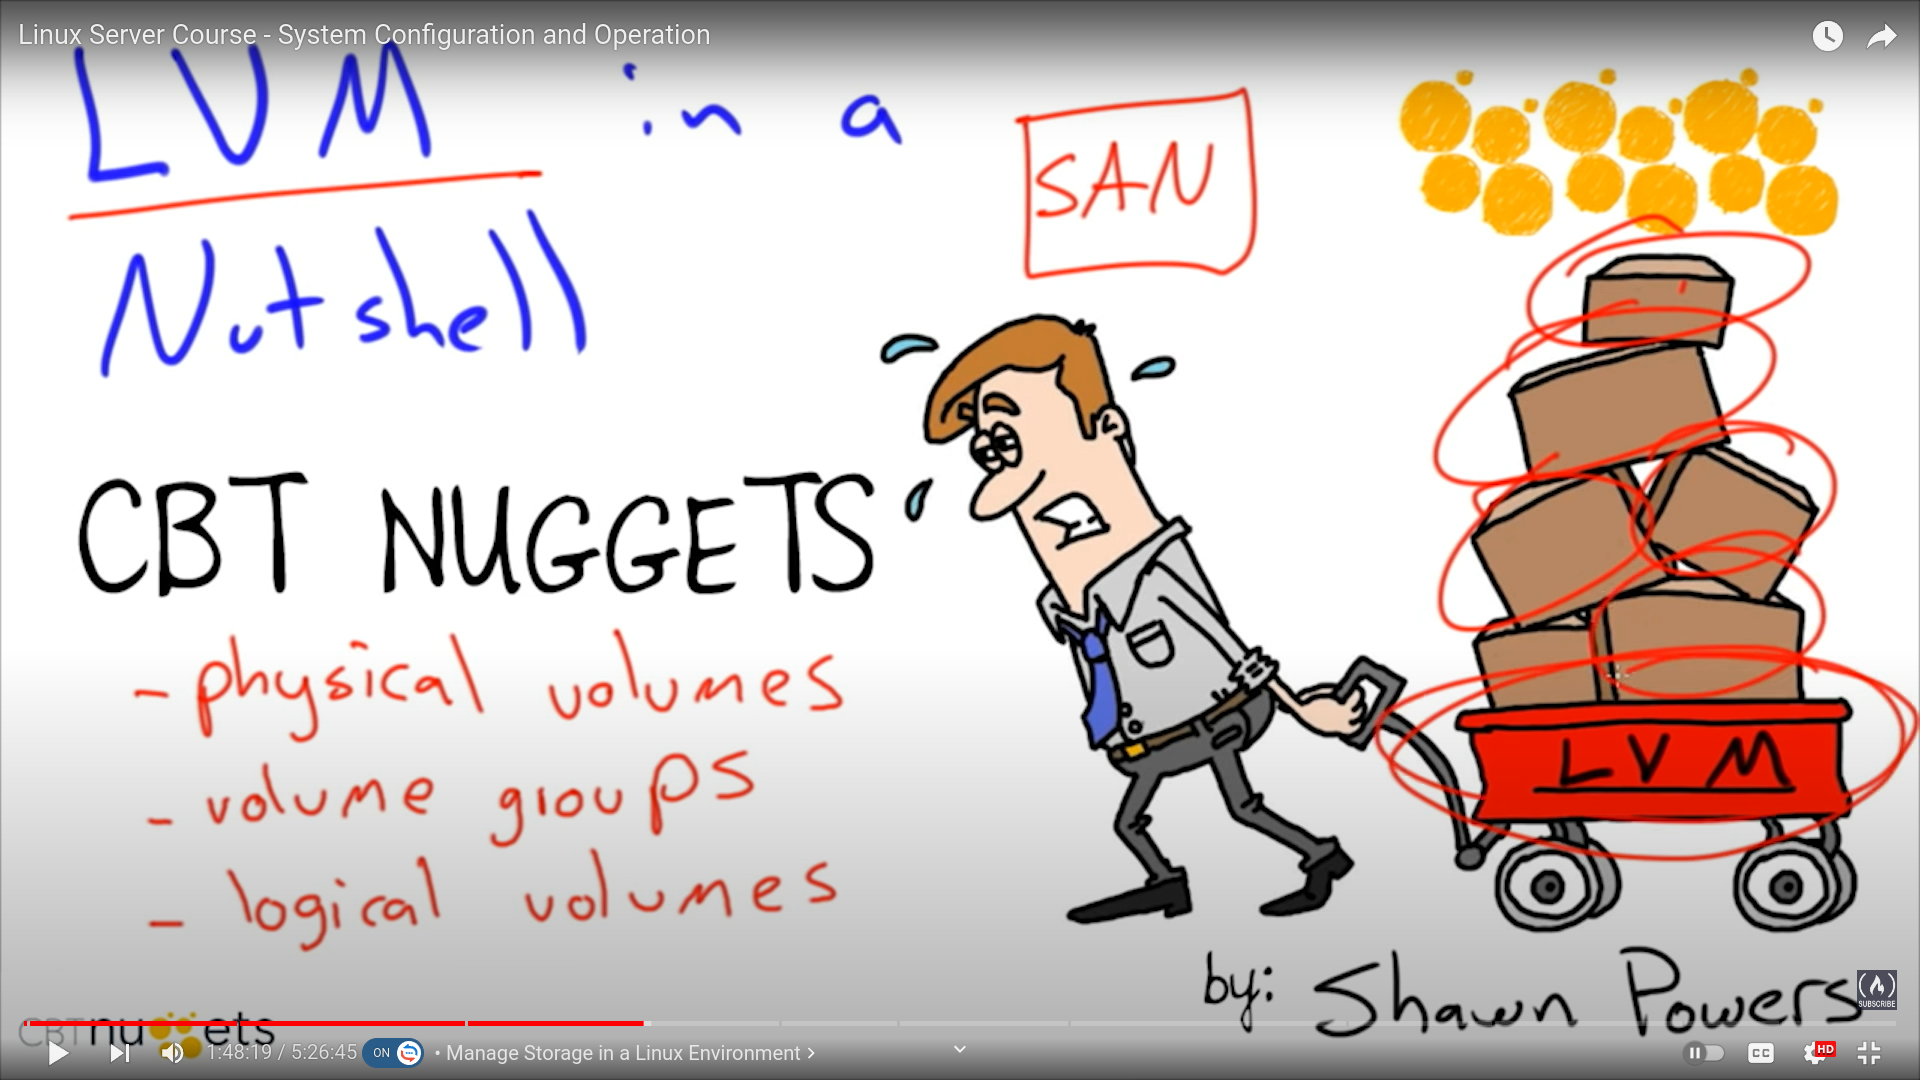 Linux Server Course - System Configuration and Operation
LVM in a
Nutshell
SAN
CBT NUGGETS
- physical volumes
- volume groups
- logical volumes
LVM
by: Shawn Powers
SUBSCRIBE
CBTnuggets
1:48:19 / 5:26:45 ON • Manage Storage in a Linux Environment
CC
HD